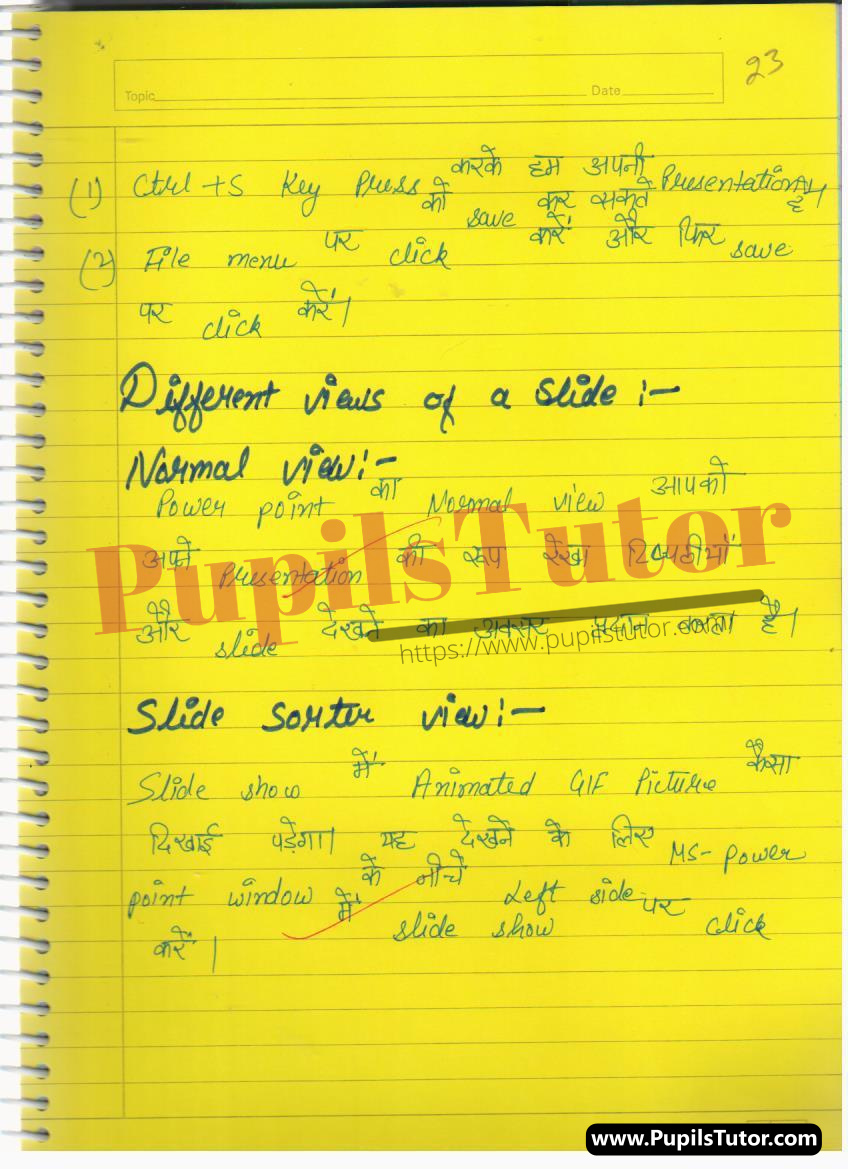 23
Topic Date
(1) Ctrl +S Key Press करके हम अपनी Presentation
को save कर सकते है।
(2) File menu पर click करें और फिर save
पर click करें।
Different views of a slide :-
Normal view:-
Power point का Normal view आपको
अपने Presentation की रूप रेखा टिप्पणीयाँ
और slide देखने का अवसर प्रदान करता है।
PupilsTutor
https://www.pupilstutor.com
Slide sorter view:-
Slide show में Animated GIF Picture कैसा
दिखाई पड़ेगा। यह देखने के लिए MS- power
point window के नीचे में Left side पर
slide show click
करें।
www.PupilsTutor.com